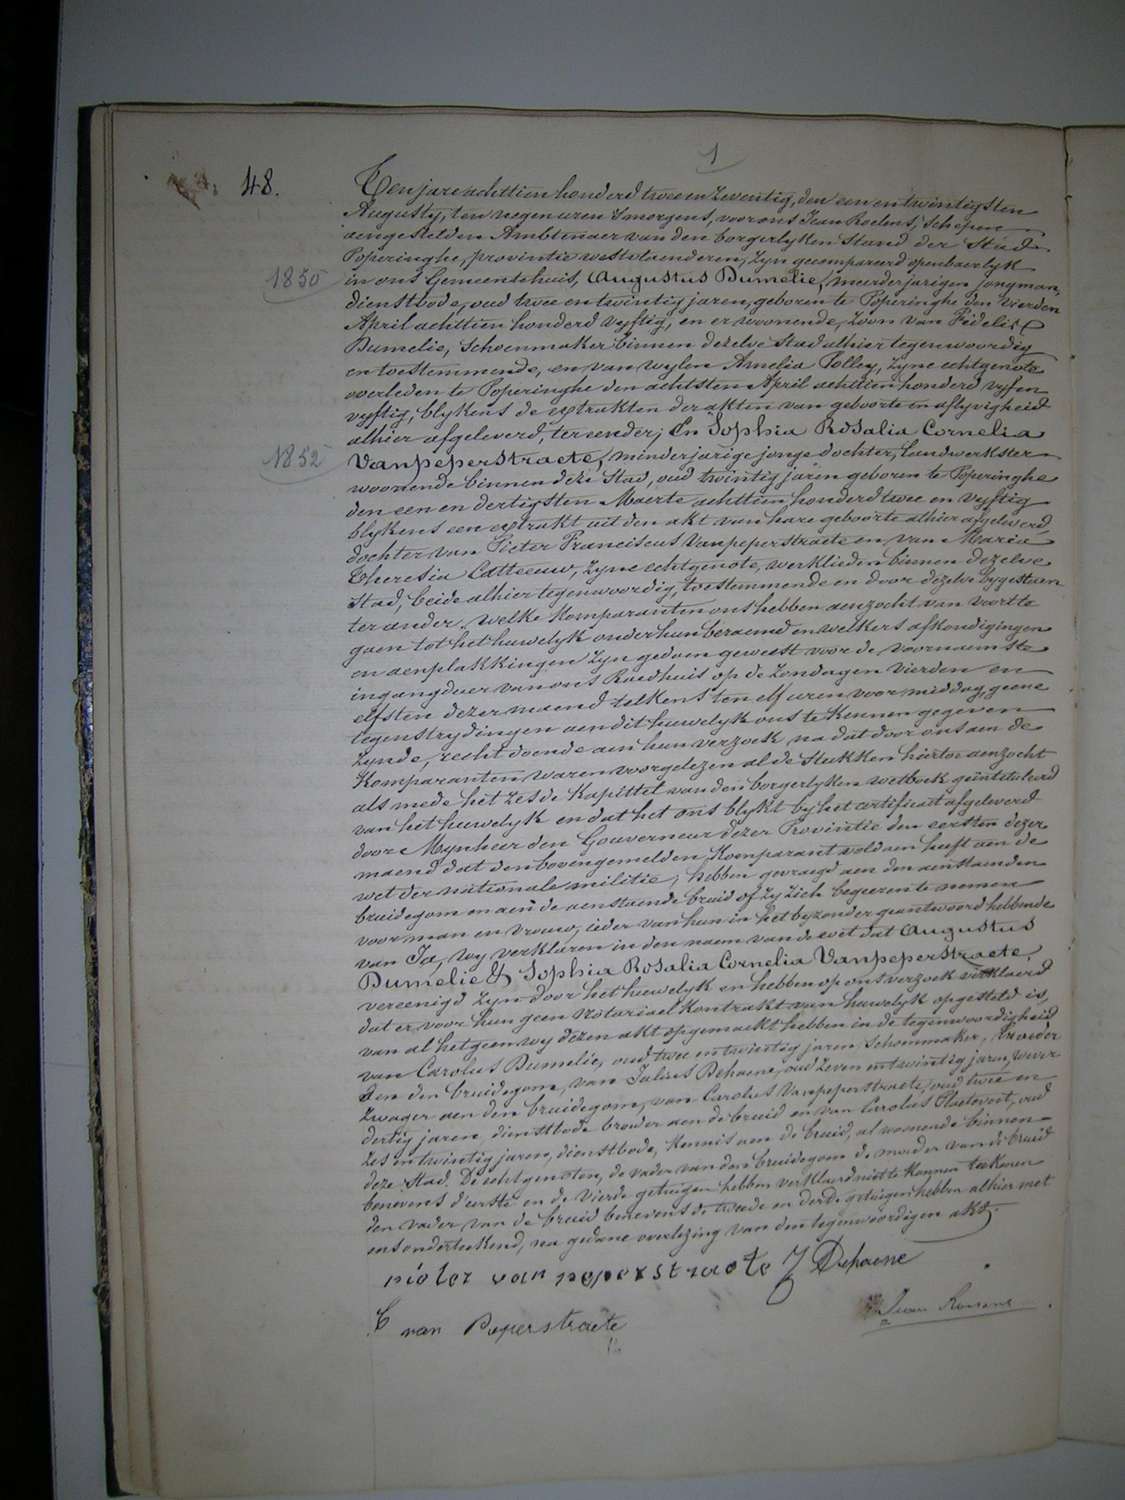 1
48.
Ten jare achttien honderd twee en Zeventig, den een en twintigsten
Augusty, ten negen uren smorgens, voor ons Jean Roelens, Schepen
aengestelden Ambtenaer van den borgerlyken Stand der Stad
Poperinghe, provintie westvlaenderen, Zyn gecompareerd openbaerlyk
1850
in ons Gemeentehuis, Augustus Dumelie, meerderjarigen jongman,
dienstbode, oud twee en twintig jaren, geboren te Poperinghe den vierden
April achttien honderd vyftig, en er woonende, Zoon van Fidelis
Dumelie, Schoenmaker binnen dezelve Stad alhier tegenwoordig
en toestemmende, en van wylen Amelia Polley, Zyne echtgenote
overleden te Poperinghe den achtsten April achttien honderd vyf en
vyftig, blykens de extrakten der akten van geboorte en aflyvigheid
alhier afgeleverd, ter eender; En Sophia Rosalia Cornelia
1852
Vanpeperstraete, minderjarige jonge dochter, Landwerkster
woonende binnen deze Stad, oud twintig jaren geboren te Poperinghe
den een en dertigsten Maerte achttien honderd twee en vyftig
blykens een extrakt uit den akt van hare geboorte alhier afgeleverd,
dochter van Pieter Franciscus Vanpeperstraete en van Maria
Theresia Catteeuw, Zyne echtgenote, werklieden binnen dezelve
Stad, beide alhier tegenwoordig, toestemmende en door dezelve bygestaan
ter ander, welke Komparanten ons hebben aenzocht van voort te
gaen tot het huwelyk onder hun beraemd en welkers afkondigingen
en aenplakkingen Zyn gedaen geweest voor de voornaemste
ingangdeur van ons Raedhuis op de Zondagen vierden en
elfsten dezer maend telkens ten elf uren voormiddag, geene
tegenstrydingen aen dit huwelyk ons te Kennen gegeven
Zynde, recht doende aen hun verzoek na dat door ons aen de
Komparanten waren voorgelezen al de Stukken hiertoe aenzocht
als mede het Zesde Kapittel van den borgerlyken wetboek geintituleerd
van het huwelyk en dat het ons blykt by het certificaet afgeleverd
door Mynheer den Gouverneur dezer Provintie den eersten dezer
maend dat den bovengemelden Komparant voldaen heeft aen de
wet der nationale militie; hebben gevraegd aen den aenstaenden
bruidegom en aen de aenstaende bruid of Zy Zich begeeren te nemen
voor man en vrouw; ieder van hun in het byzonder geantwoord hebbende
van Ja, wy verklaren in den naem van de wet dat Augustus
Dumelie & Sophia Rosalia Cornelia Vanpeperstraete,
vereenigd Zyn door het huwelyk en hebben op ons verzoek verklaerd
dat er voor hun geen Notariael Kontrakt van huwelyk opgesteld is,
van al hetgeen wy dezen akt opgemaekt hebben in de tegenwoordigheid
van Carolus Dumelie, oud twee en twintig jaren, Schoenmaker, broeder
aen den bruidegom, van Julius Dehaene, oud Zeven en twintig jaren, wever
Zwager aen den bruidegom, van Carolus Vanpeperstraete, oud twee en
dertig jaren, dienstbode broeder aen de bruid en van Carolus Plaetevoet, oud
Zes en twintig jaren, dienstbode, Kennis aen de bruid, al woonende binnen
deze Stad. De echtgenoten, de vader van den bruidegom de moeder van de bruid
benevens d'eerste en de vierde getuigen hebben verklaerd niet te Konnen teekenen
den vader van de bruid benevens de tweede en derde getuigen hebben alhier met
ons onderteekend, na gedane voorlezing van den tegenwoordigen akt.
pieter van peperstraete J Dehaene
C van Peperstraete
Jean Roelens